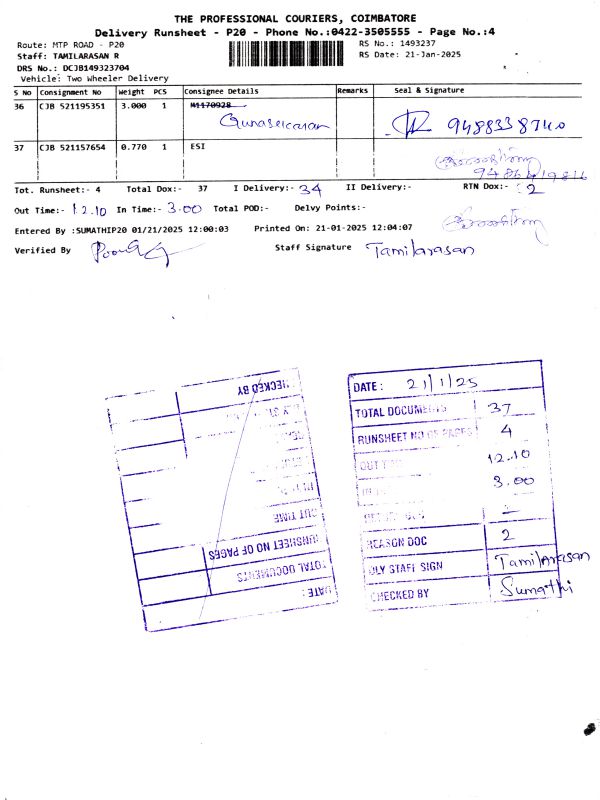 THE PROFESSIONAL COURIERS, COIMBATORE
Delivery Runsheet - P20 - Phone No.:0422-3505555 - Page No.:4
Route: MTP ROAD - P20 RS No.: 1493237
Staff: TAMILARASAN R RS Date: 21-Jan-2025
DRS No.: DCJB149323704
Vehicle: Two Wheeler Delivery
S No Consignment No Weight PCS Consignee Details Remarks Seal & Signature
36 CJB 521195351 3.000 1 M1170928
Gunasekaran 9488338740
37 CJB 521157654 0.770 1 ESI
Tot. Runsheet:- 4 Total Dox:- 37 I Delivery:- 34 II Delivery:- RTN Dox:- 2
Out Time:- 12.10 In Time:- 3.00 Total POD:- Delvy Points:-
Entered By :SUMATHIP20 01/21/2025 12:00:03 Printed On: 21-01-2025 12:04:07
Verified By Staff Signature Tamilarasan
CHECKED BY
OUT TIME
RUNSHEET NO OF PAGES
TOTAL DOCUMENTS
DATE :
DATE : 21/1/25
TOTAL DOCUMENTS 37
RUNSHEET NO OF PAGES 4
OUT 12.10
3.00
REASON DOC 2
DLY STAFF SIGN Tamilarasan
CHECKED BY Sumathi